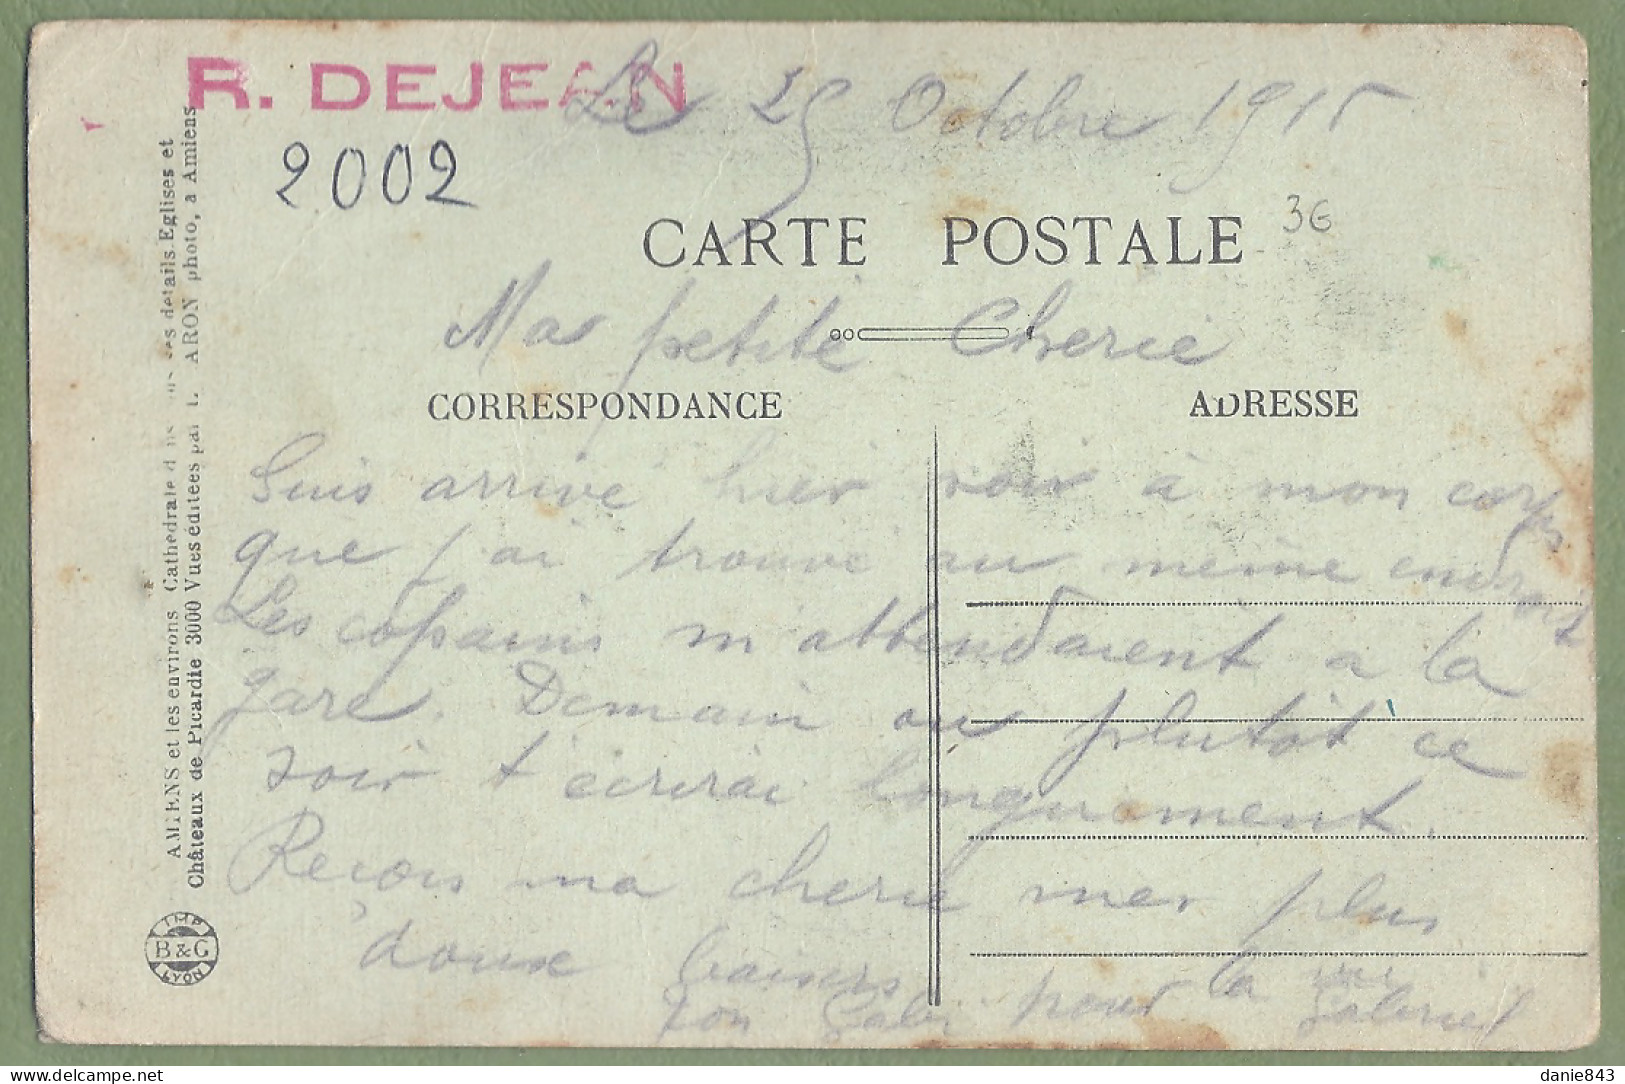 R. DEJEAN
Le 25 Octobre 1915
2002
CARTE POSTALE
3€
Ma petite Cherie
CORRESPONDANCE
ADRESSE
Suis arrivé hier soir à mon corps
que j'ai trouvé au même endroit
Les copains m'attendaient a la
gare. Demain ou plutôt ce
soir t'écrirai longuement.
Reçois ma cherie mes plus
doux baisers
ton Gaby pour la vie
Gabriel
AMIENS et les environs Cathédrale ses détails Eglises et
Châteaux de Picardie 3000 Vues éditées par L. CARON photo, a Amiens
IMP
B & G
LYON
danie843